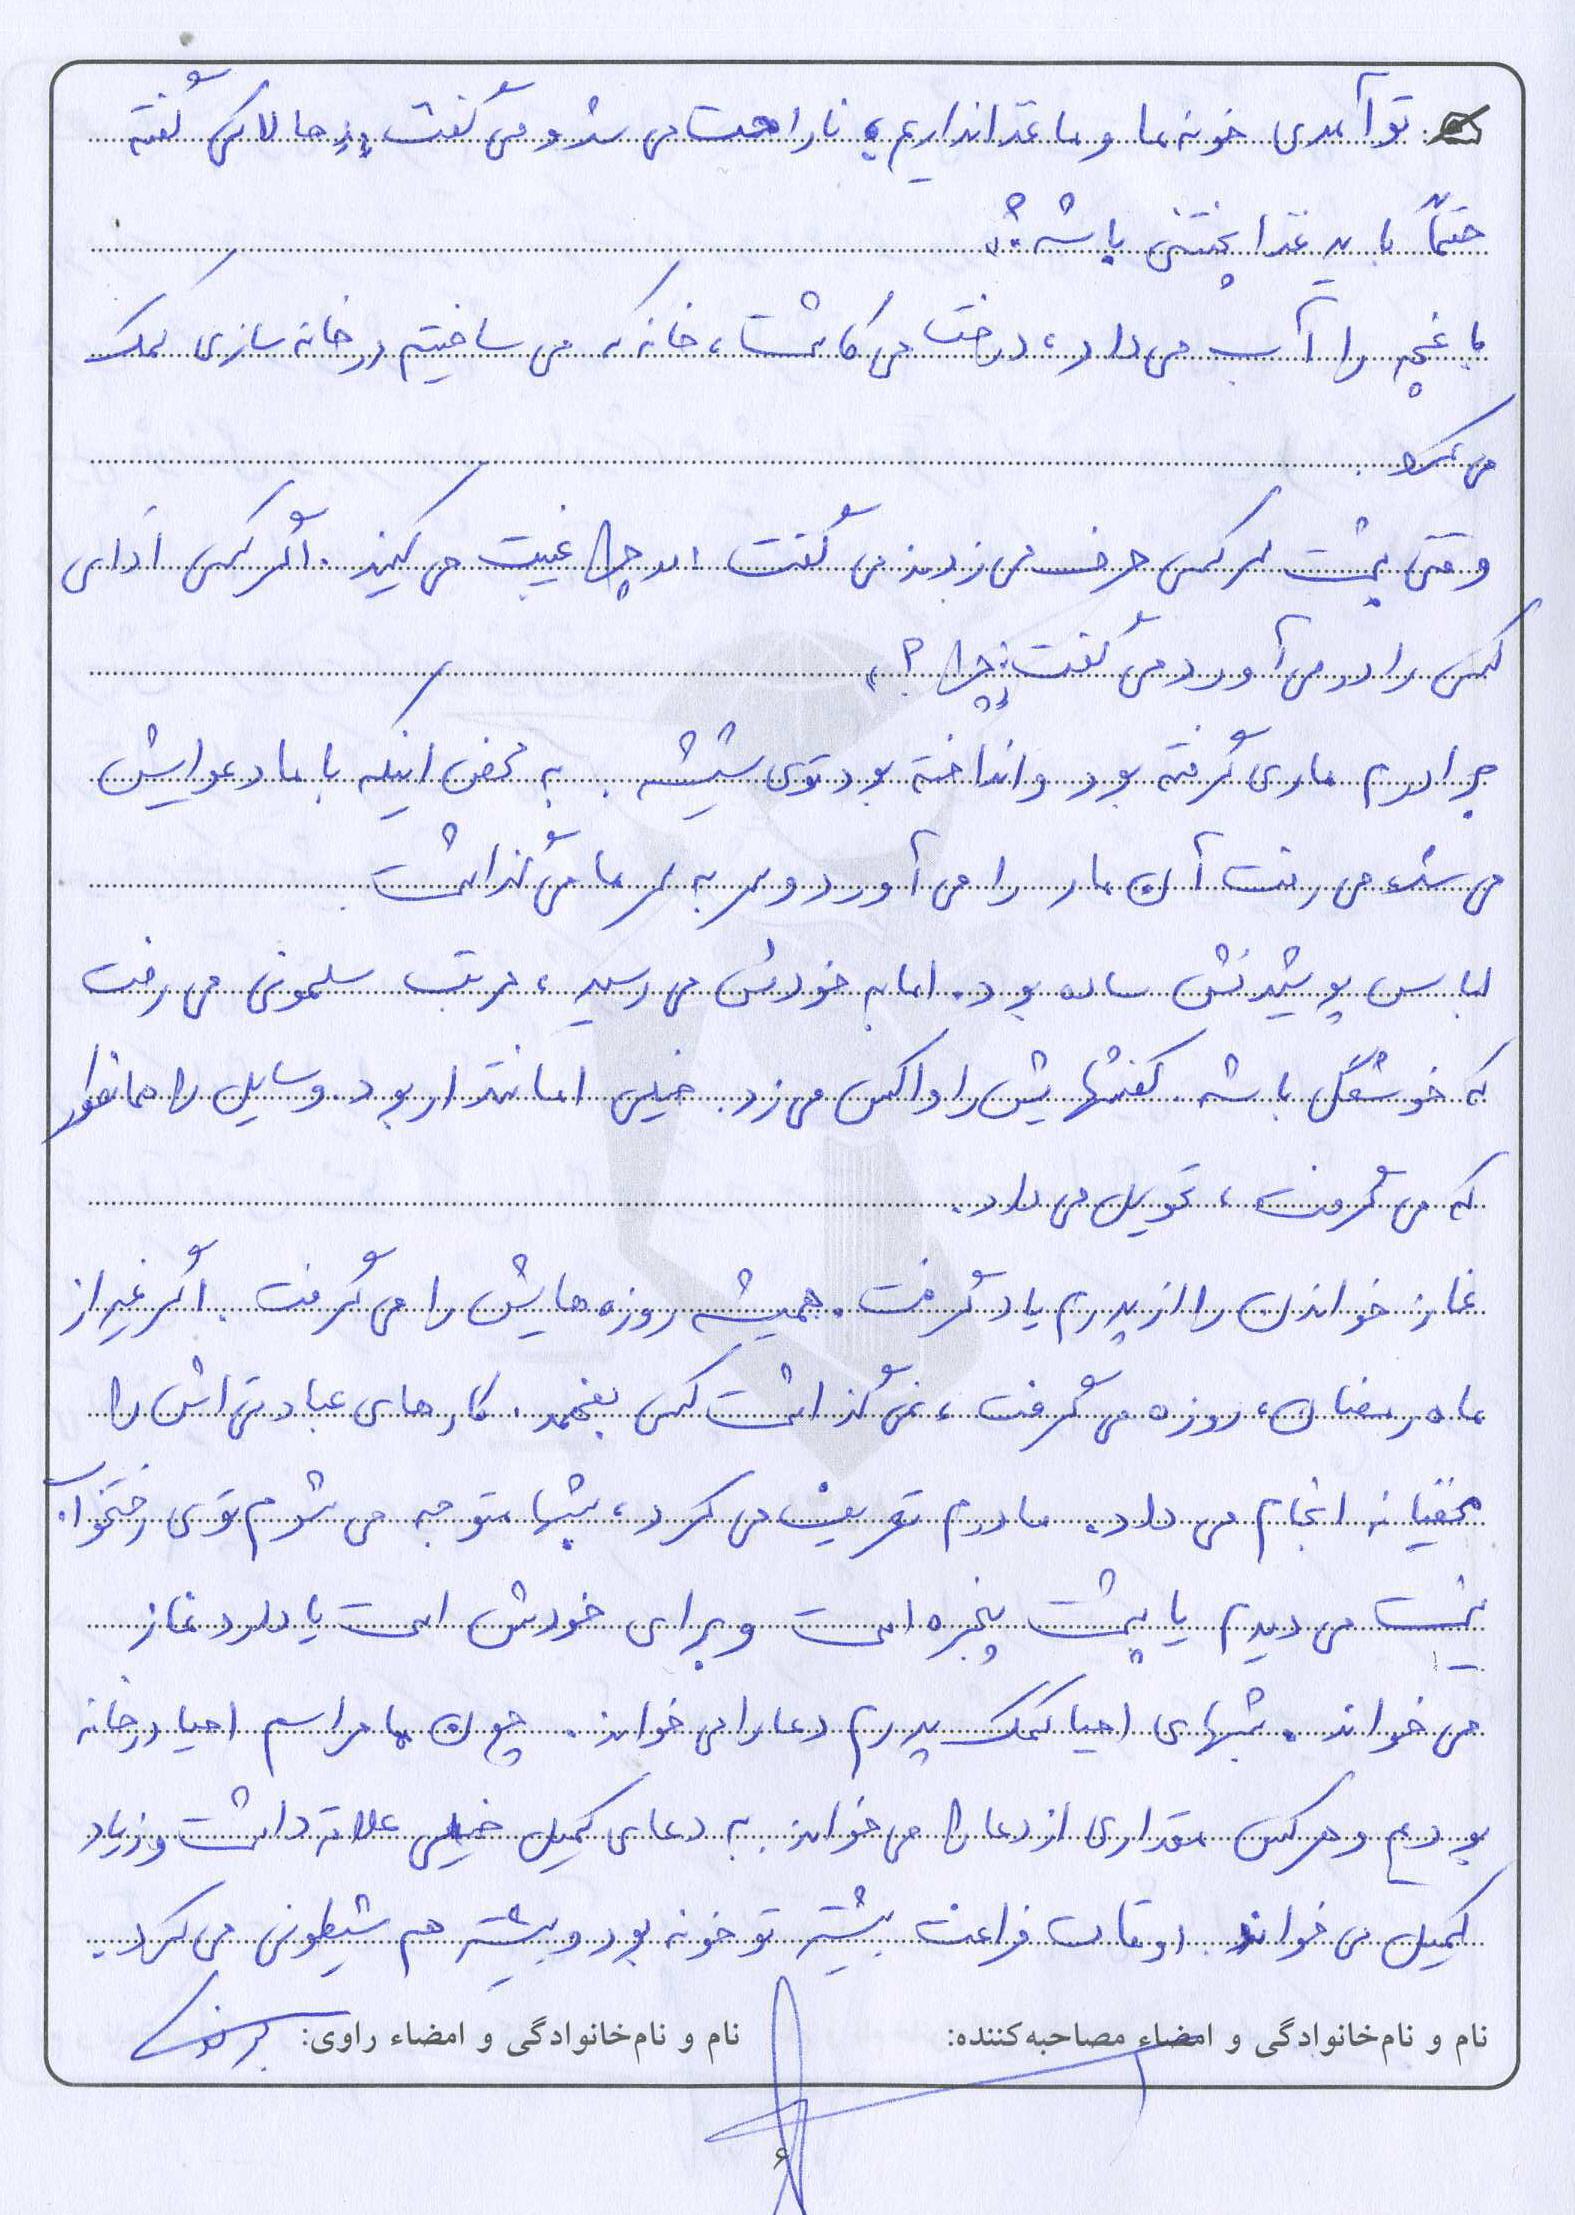 تو آمدی خونه ما و ما غذا نداریم، ناراحت می شد و می گفت: «حالا کی گفته
حتماً باید غذا پختنی باشه؟»
باغچه را آب می داد، درخت می کاشت، خانه که می ساختیم در خانه سازی کمک
می کرد.
وقتی پشت سر کسی حرف می زدند می گفت: چرا غیبت می کنید. اگر کسی ادای
کسی را در می آورد می گفت: «چرا؟»
برادرم ماری گرفته بود و انداخته بود توی شیشه. به محض اینکه با ما دعوایش
می شد می رفت آن مار را می آورد و سر به سر ما می گذاشت.
لباس پوشیدنش ساده بود. اما به خودش می رسید، مرتب سلمونی می رفت
که خوشگل باشه. کفشهایش را واکس می زد. خیلی امانتدار بود. وسایل را همانطور
که می گرفت، تحویل می داد.
نماز خواندن را از پدرم یاد گرفت. همیشه روزه هایش را می گرفت. اگر غیر از
ماه رمضان، روزه می گرفت، نمی گذاشت کسی بفهمد. کارهای عبادتی اش را
مخفیانه انجام می داد. مادرم تعریف می کرد، شبها متوجه می شوم توی رختخواب
نیست می دیدم یا پشت پنجره است و برای خودش است یا دارد نماز
می خواند. شبهای احیا کمک پدرم دعا را می خواند. چون ما مراسم احیا در خانه
بودیم و هر کس مقداری از دعا را می خواند. به دعای کمیل خیلی علاقه داشت و زیاد
کمیل می خواند. اوقات فراغت بیشتر تو خونه بود و بیشتر هم شیطونی می کرد.
نام و نام‌خانوادگی و امضاء مصاحبه‌کننده: نام و نام‌خانوادگی و امضاء راوی:
۶